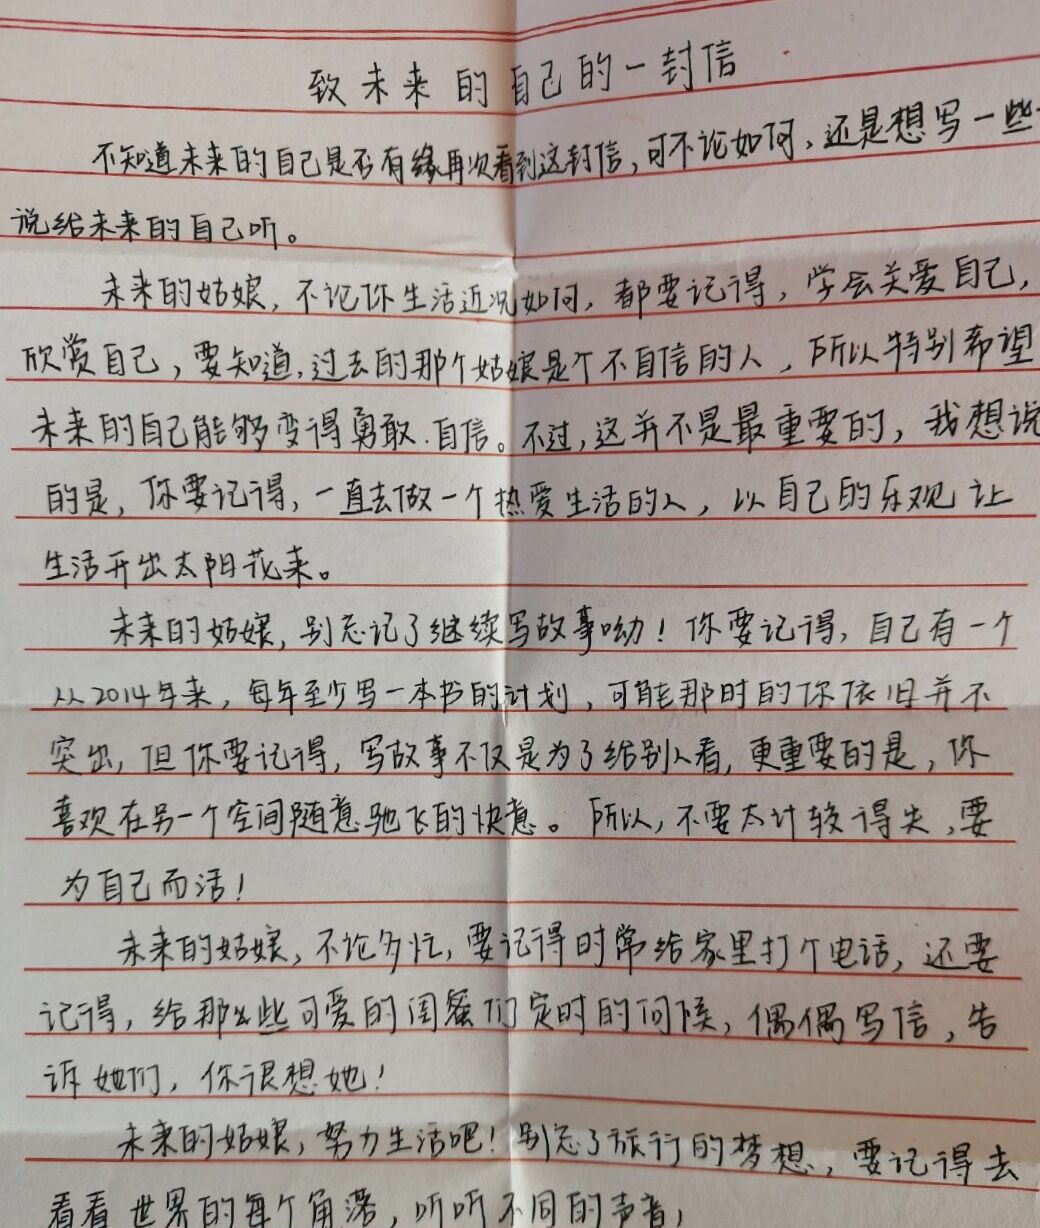 致未来的自己的一封信
不知道未来的自己是否有缘再次看到这封信，可不论如何，还是想写一些
说给未来的自己听。
未来的姑娘，不论你生活近况如何，都要记得，学会关爱自己，
欣赏自己，要知道，过去的那个姑娘是个不自信的人，所以特别希望
未来的自己能够变得勇敢、自信。不过，这并不是最重要的，我想说
的是，你要记得，一直去做一个热爱生活的人，以自己的乐观让
生活开出太阳花来。
未来的姑娘，别忘记了继续写故事呦！你要记得，自己有一个
从2014年来，每年至少写一本书的计划，可能那时的你依旧并不
突出，但你要记得，写故事不仅是为了给别人看，更重要的是，你
喜欢在另一个空间随意驰飞的快意。所以，不要太计较得失，要
为自己而活！
未来的姑娘，不论多忙，要记得时常给家里打个电话，还要
记得，给那么些可爱的闺蜜们定时的问候，偶偶写信，告
诉她们，你很想她！
未来的姑娘，努力生活吧！别忘了旅行的梦想，要记得去
看看世界的每个角落，听听不同的声音，